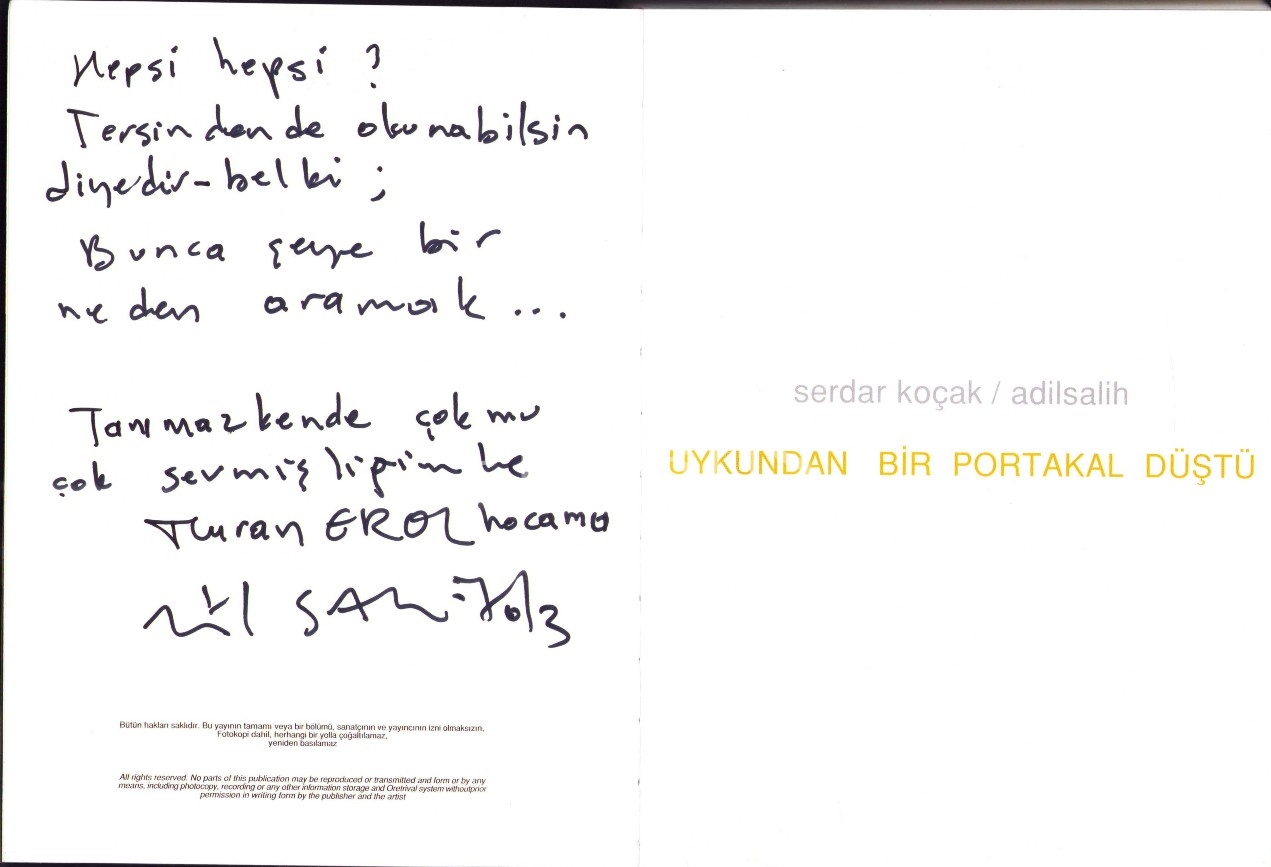 Hepsi hepsi ?
Tersinden de okunabilsin
diyedir-belki ;
Bunca şeye bir
neden aramak ...
çok mu
çok sevmişliğimle
Turan EROL hocama
Bütün hakları saklıdır. Bu yayının tamamı veya bir bölümü, sanatçının ve yayıncının izni olmaksızın,
Fotokopi dahil, herhangi bir yolla çoğaltılamaz,
yeniden basılamaz
All rights reserved. No parts of this publication may be reproduced or transmitted and form or by any
means, including photocopy, recording or any other information storage and Oretrival system withoutprior
permission in writing form by the publisher and the artist
serdar koçak / adilsalih
UYKUNDAN BİR PORTAKAL DÜŞTÜ